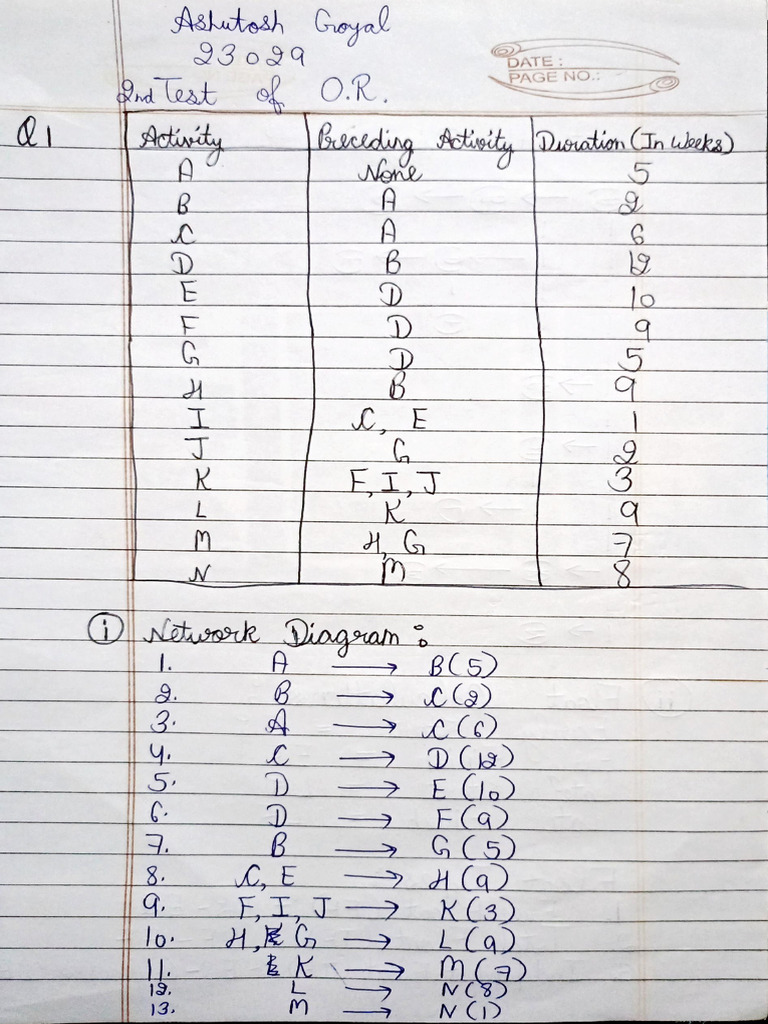 Ashutosh Goyal
23029
DATE :
PAGE NO.:
2nd Test of O.R.
Q1 Activity Preceding Activity Duration (In Weeks)
A None 5
B A 2
C A 6
D B 12
E D 10
F D 9
G D 5
H B 9
I C, E 1
J G 2
K F, I, J 3
L K 9
M H, G 7
N M 8
i Network Diagram :
1. A → B(5)
2. B → C(2)
3. A → C(6)
4. C → D(12)
5. D → E(10)
6. D → F(9)
7. B → G(5)
8. C, E → H(9)
9. F, I, J → K(3)
10. H, G → L(9)
11. K → M(7)
12. L → N(8)
13. M → N(1)